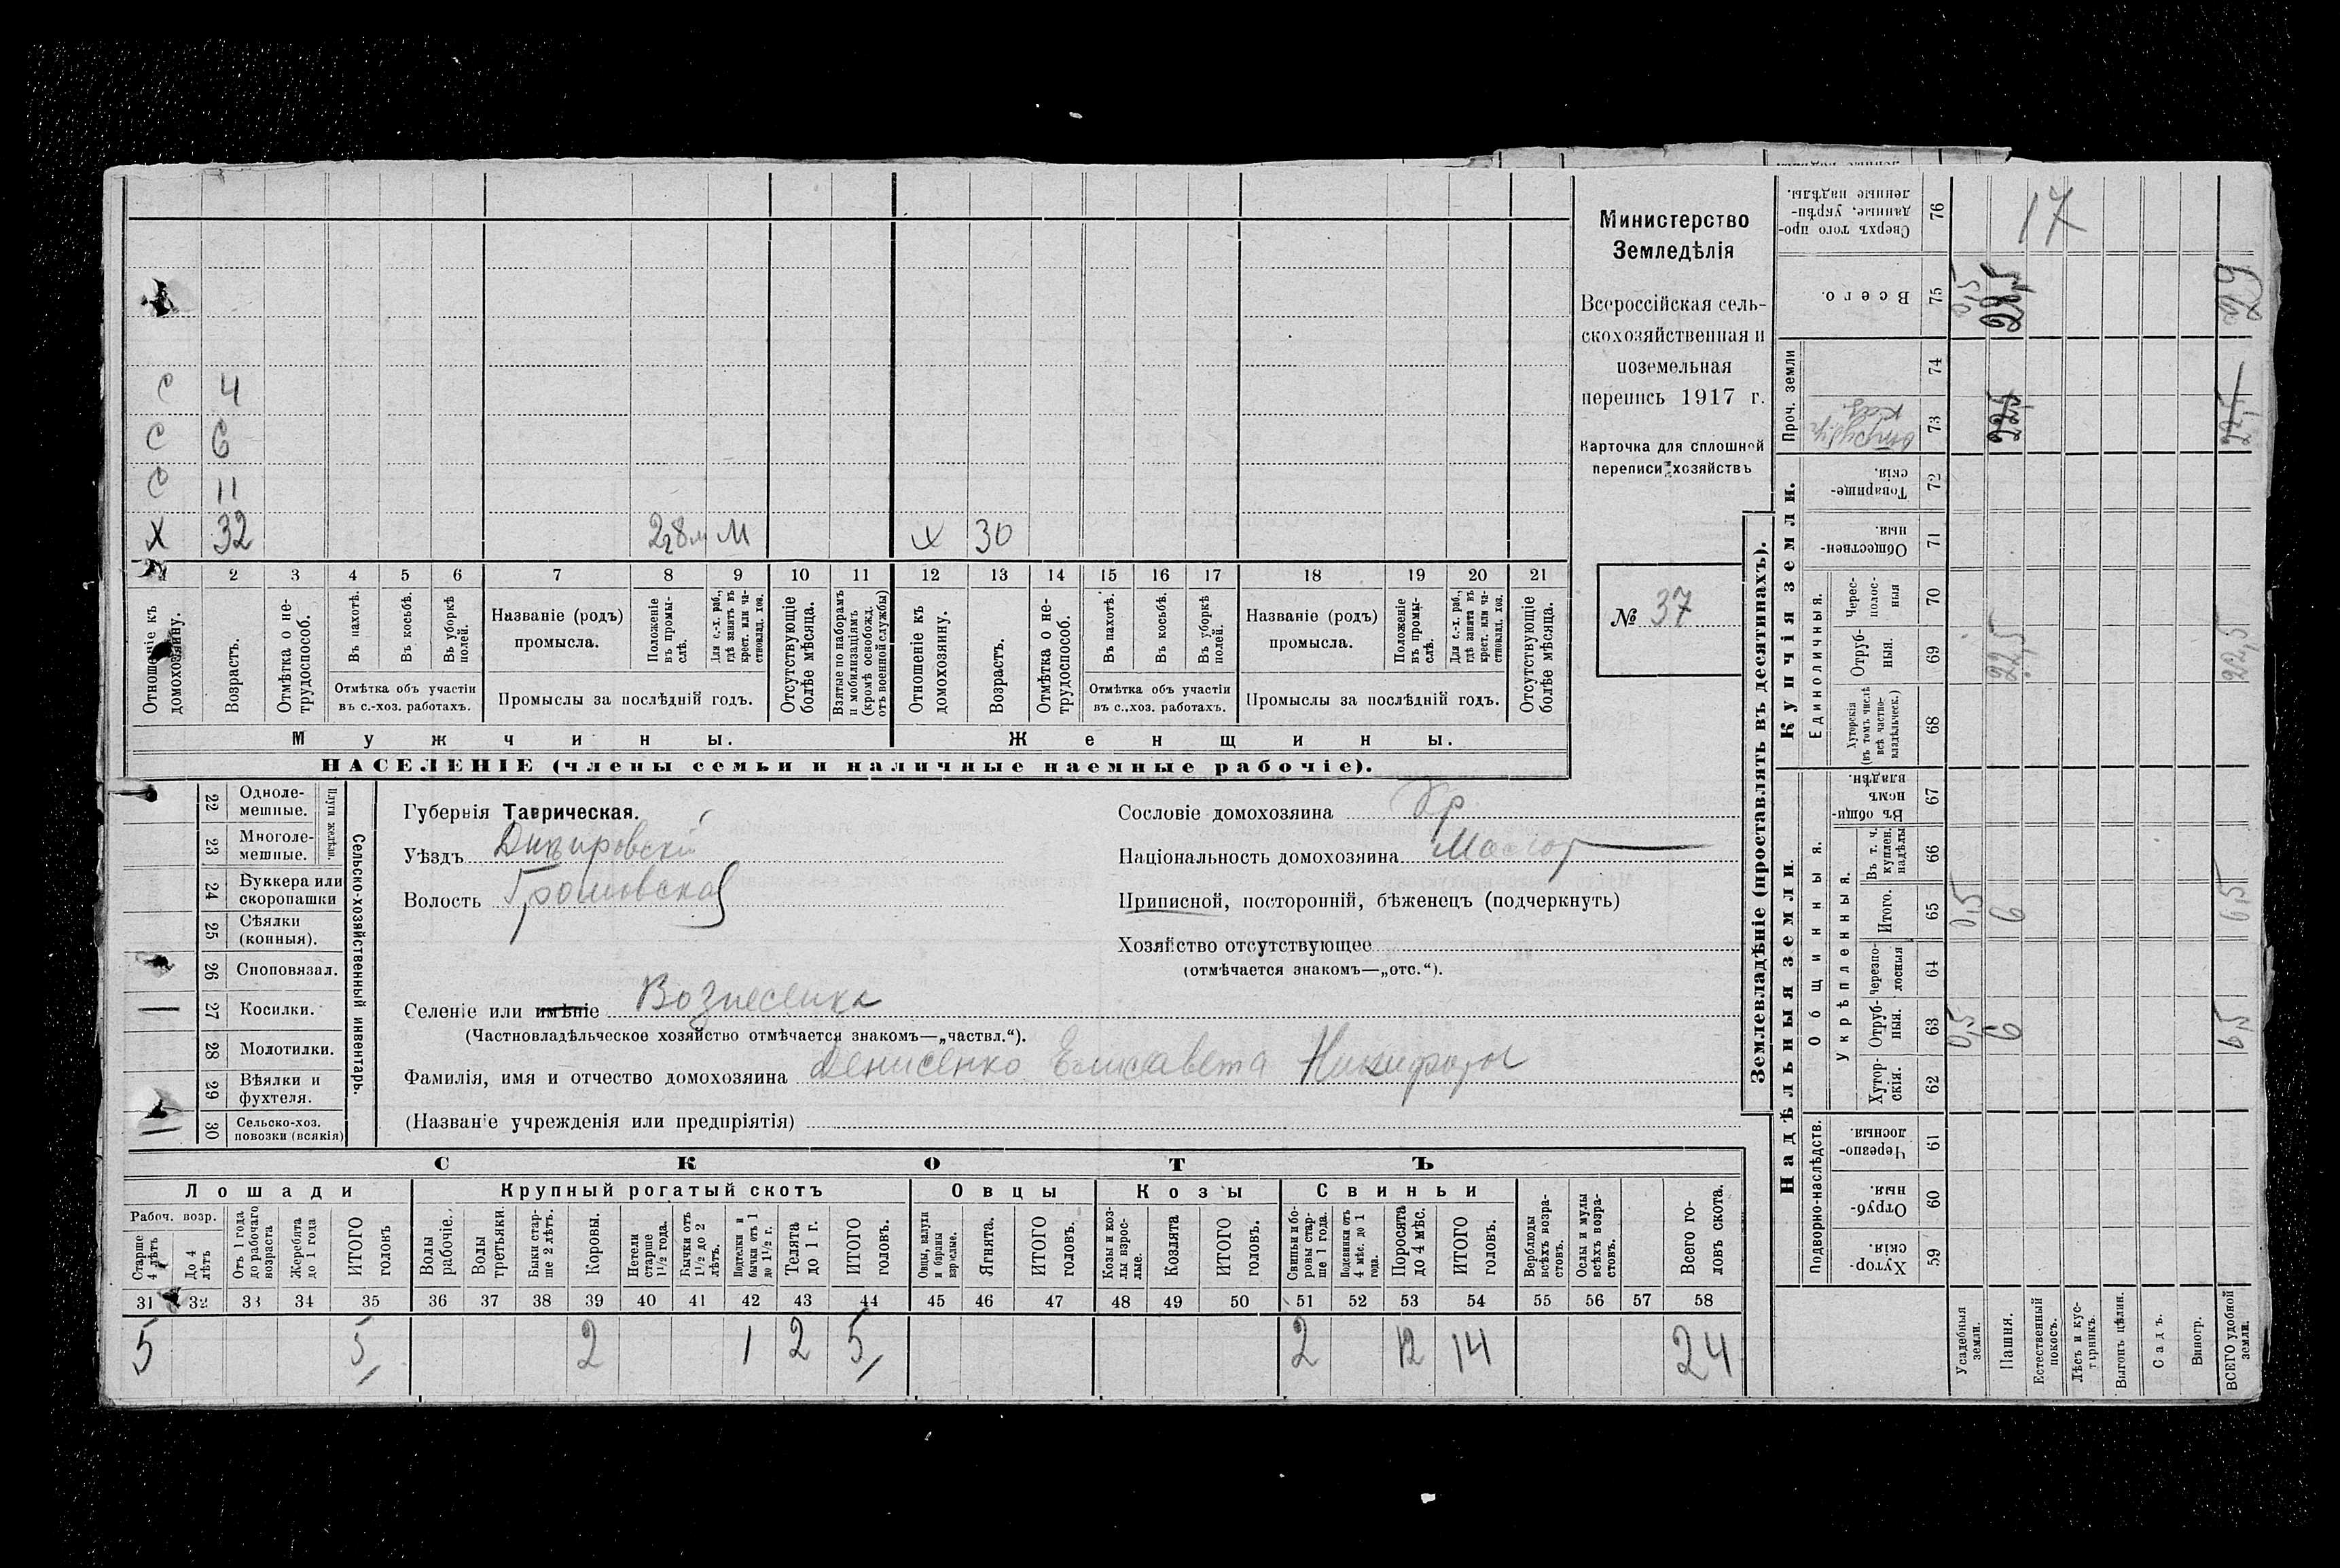 С 4
С 6
С 11
Х 32 М Х 30
1 2 3 4 5 6 7 8 9 10 11 12 13 14 15 16 17 18 19 20 21
Отношеніе къ домохозяину.
Возрастъ.
Отмѣтка о не-
трудоспособ.
Въ пахотѣ.
Въ косьбѣ.
Въ уборкѣ полей.
Отмѣтка объ участіи
въ с.-хоз. работахъ.
Названіе (родъ)
промысла.
Положеніе въ промы-
слѣ.
Для с.-х. раб., гдѣ занятъ въ крест. или ча-
стновлад. хоз.
Промыслы за послѣдній годъ.
Отсутствующіе болѣе мѣсяца.
Взятые по наборамъ и мобилизаціямъ (кромѣ освобожд. отъ военной службы)
Отношеніе къ домохозяину.
Возрастъ.
Отмѣтка о не-
трудоспособ.
Въ пахотѣ.
Въ косьбѣ.
Въ уборкѣ полей.
Отмѣтка объ участіи
въ с..хоз. работахъ.
Названіе (родъ)
промысла.
Положеніе въ промы-
слѣ.
Для с.-х. раб., гдѣ занята въ крест. или ча-
стновлад. хоз.
Промыслы за послѣдній годъ.
Отсутствующіе болѣе мѣсяца.
Мужчины.
Женщины.
НАСЕЛЕНІЕ (члены семьи и наличные наемные рабочіе).
Министерство
Земледѣлія
Всероссійская сель-
скохозяйственная и
поземельная
перепись 1917 г.
Карточка для сплошной
переписи хозяйствъ
№ 37
22 Одноле-
мешные.
23 Многоле-
мешные.
Плуги желѣзн.
24 Буккера или
скоропашки
25 Сѣялки
(конныя).
26 Сноповязал.
27 Косилки.
28 Молотилки.
29 Вѣялки и
фухтеля.
30 Сельско-хоз.
повозки (всякія)
Сельско-хозяйственный инвентарь.
Губернія Таврическая.
Уѣздъ Днѣпровскій
Волость Громовская
Селеніе или имѣніе Вознесенка
(Частновладѣльческое хозяйство отмѣчается знакомъ—„частвл.“).
Фамилія, имя и отчество домохозяина Денисенко Елисавета Никифоры
(Названіе учрежденія или предпріятія)
Сословіе домохозяина Кр
Національность домохозяина
Приписной, посторонній, бѣженецъ (подчеркнуть)
Хозяйство отсутствующее
(отмѣчается знакомъ—„отс.“).
СКОТЪ
Лошади
Крупный рогатый скотъ
Овцы
Козы
Свиньи
Рабоч. возр.
Старше 4 лѣтъ
До 4 лѣтъ
Отъ 1 года до рабочаго возраста
Жеребята до 1 года
ИТОГО головъ
Волы рабочіе.
Волы третьяки.
Быки стар-
ше 2 лѣтъ.
Коровы.
Нетели старше 1½ года.
Бычки отъ 1½ до 2 лѣтъ.
Подтелки и бычки отъ 1 до 1½ г.
Телята до 1 г.
ИТОГО головъ.
Овцы, валухи и бараны взрослые.
Ягнята.
ИТОГО головъ.
Козы и коз-
лы взрос-
лые.
Козлята
ИТОГО головъ.
Свиньи и бо-
ровы стар-
ше 1 года.
Подсвинки отъ 4 мѣс. до 1 года.
Поросята до 4 мѣс.
ИТОГО головъ.
Верблюды всѣхъ возра-
стовъ.
Ослы и мулы всѣхъ возра-
стовъ.
Всего го-
ловъ скота.
31 32 33 34 35 36 37 38 39 40 41 42 43 44 45 46 47 48 49 50 51 52 53 54 55 56 57 58
5 5 2 1 2 5 2 12 14 24
Землевладѣніе (проставлять въ десятинахъ).
Купчія земли.
Надѣльныя земли.
Сверхъ того про-
данные, укрѣп-
ленные надѣлы. 76 17
Всего. 75 0,5 28,5 29
Проч. земли
74
73 22,5 22,5
Товарище-
скія. 72
Обществен-
ныя. 71
Единоличныя.
Черес-
полос-
ныя 70
Отруб-
ныя. 69 22,5 22,5
Хуторскія (въ томъ числѣ всѣ частно-
владѣльческ.) 68
Общинныя.
Въ общи-
номъ
владѣн. 67
Укрѣпленныя.
Въ т. ч. куплен. надѣлы 66
Итого. 65 0,5 6 6,5
Черезпо-
лосныя 64
Отруб-
ныя. 63 0,5 6 6,5
Хутор-
скія. 62
Подворно-наслѣдств.
Черезпо-
лосныя. 61
Отруб-
ныя. 60
Хутор-
скія. 59
Усадебныя земли.
Пашня.
Естественный покосъ.
Лѣсъ и кус-
тарникъ.
Выгонъ цѣлин.
Садъ.
Виногр.
ВСЕГО удобной земли.